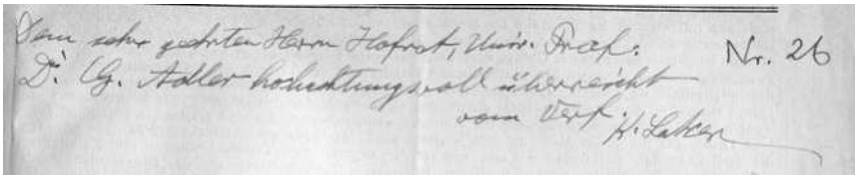 Dem sehr geehrten Herrn Hofrat, Univ. Prof.
Nr. 26
Dr. G. Adler hochachtungsvoll überreicht
vom Verf. K. Laker